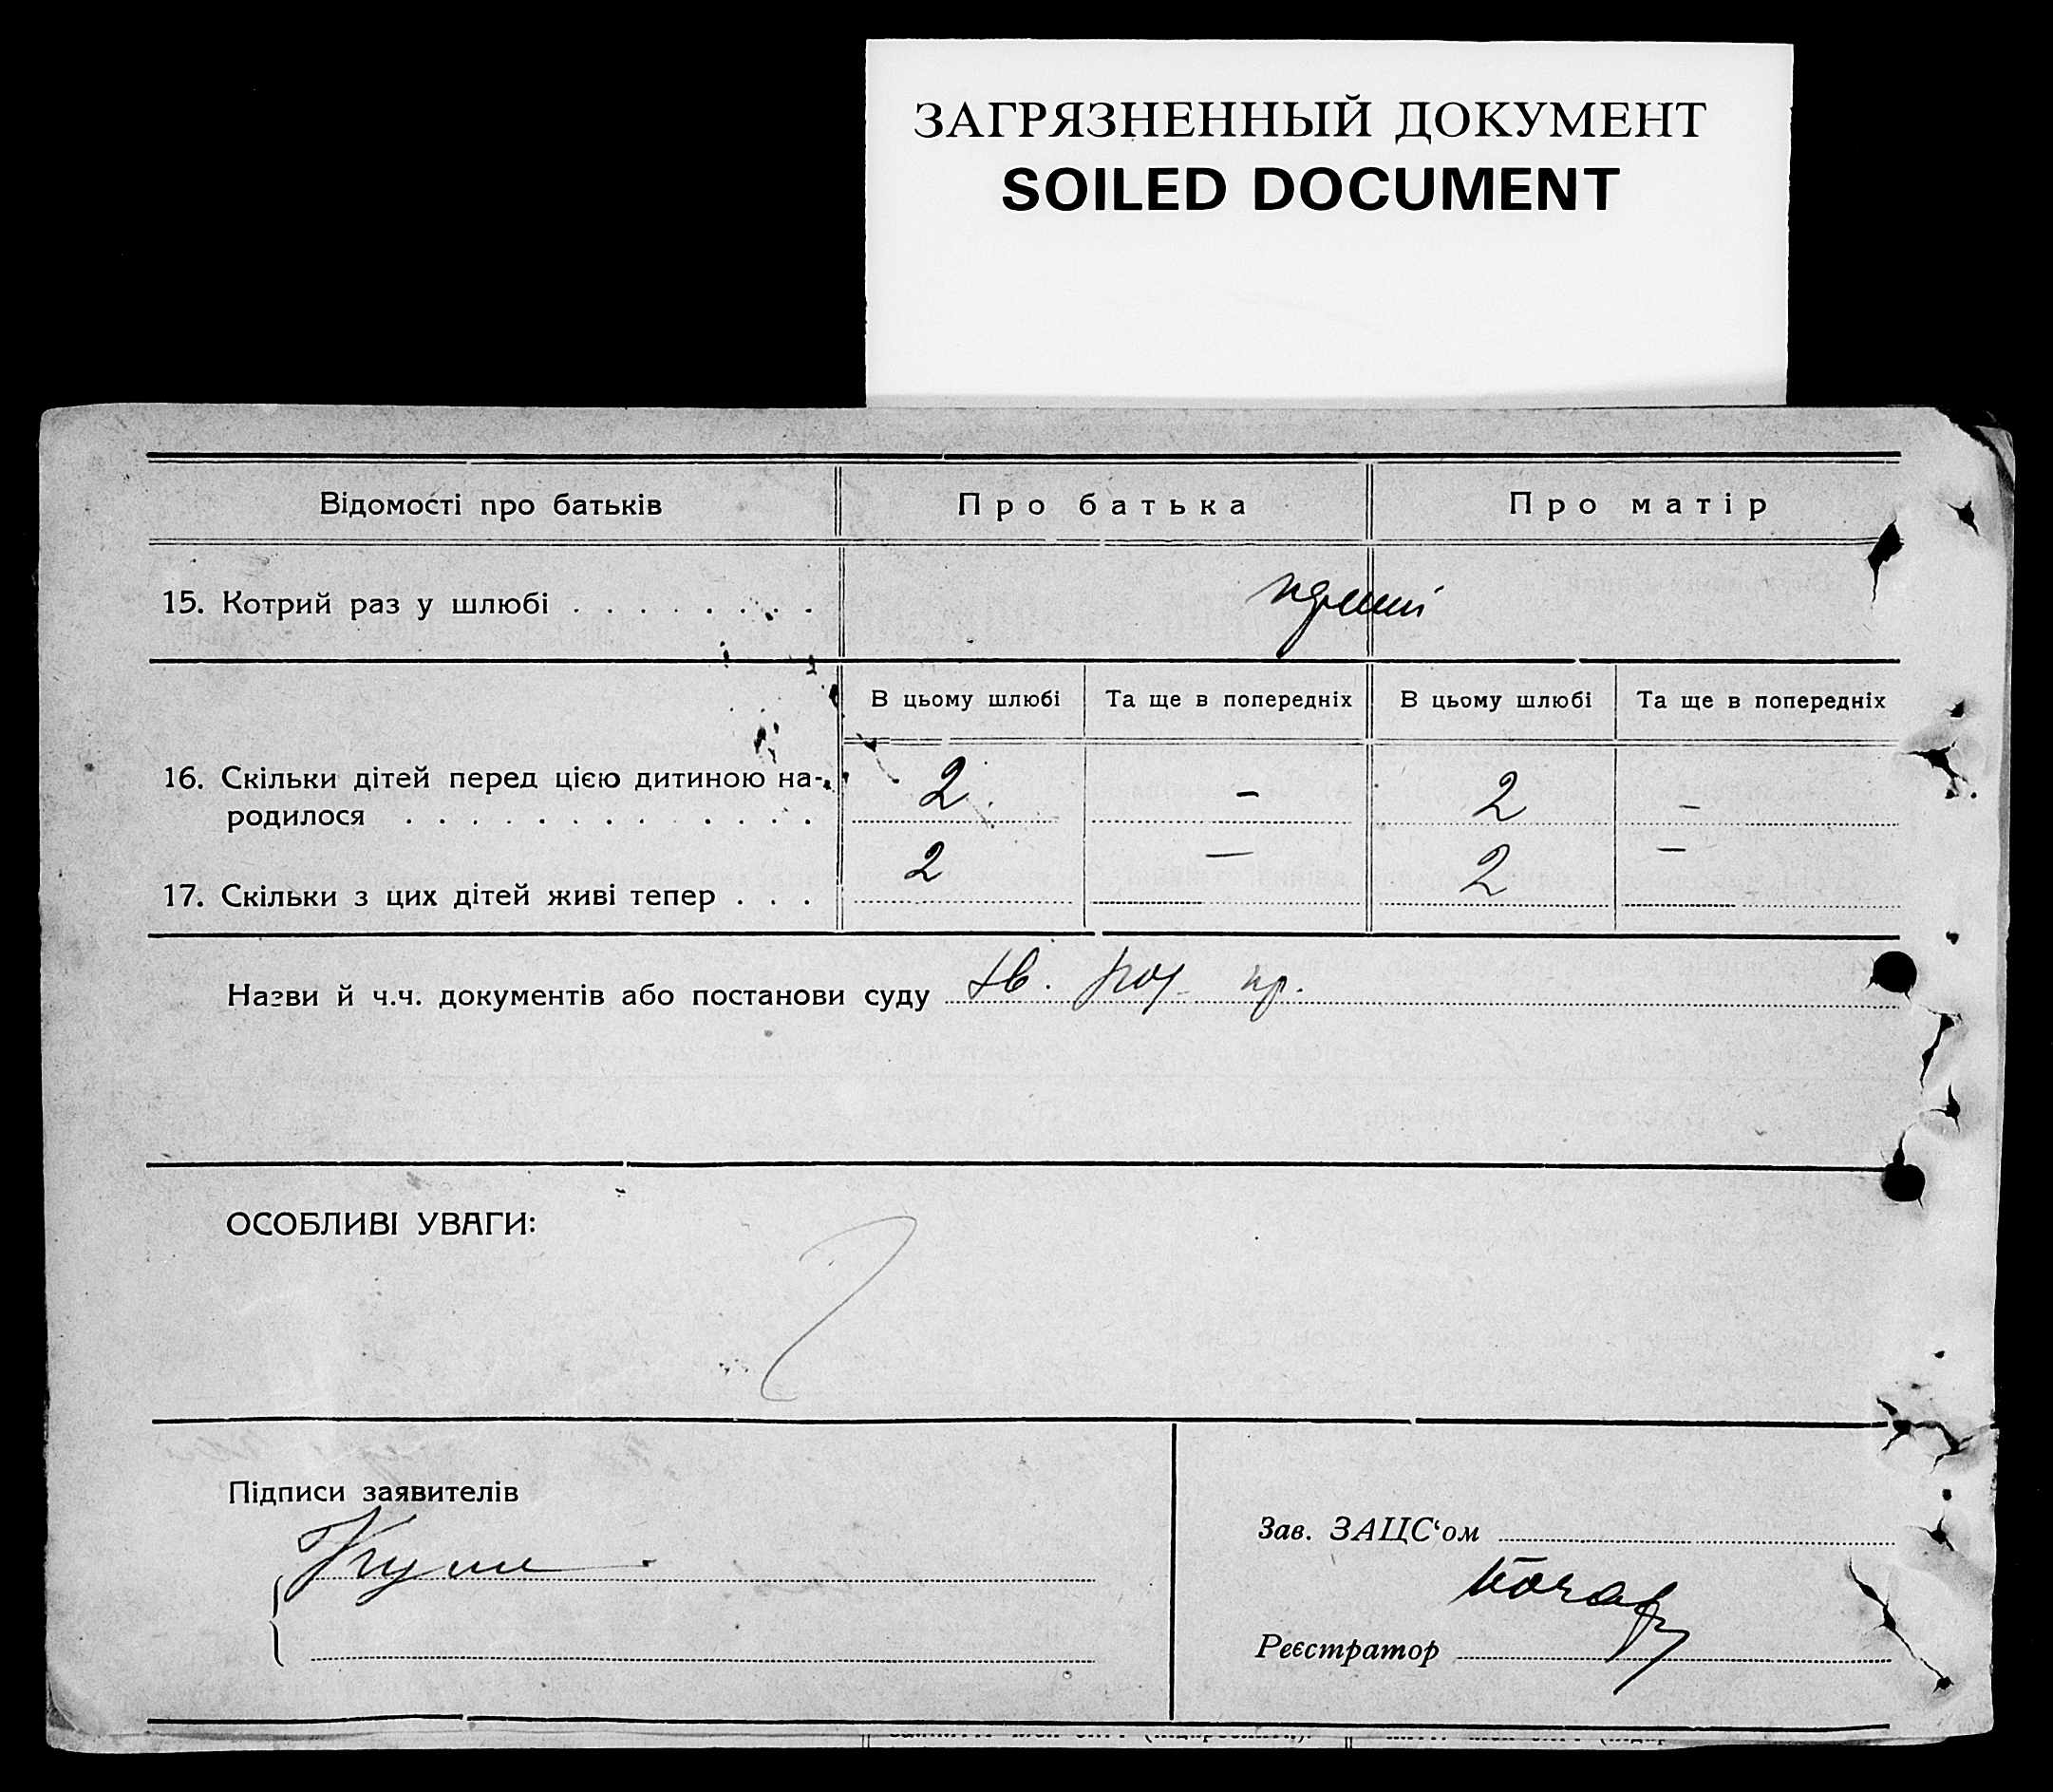 ЗАГРЯЗНЕННЫЙ ДОКУМЕНТ
SOILED DOCUMENT
Відомості про батьків Про батька Про матір
15. Котрий раз у шлюбі
В цьому шлюбі Та ще в попередніх В цьому шлюбі Та ще в попередніх
16. Скільки дітей перед цією дитиною на- 2 – 2 –
родилося
17. Скільки з цих дітей живі тепер 2 – 2 –
Назви й ч.ч. документів або постанови суду
ОСОБЛИВІ УВАГИ:
Підписи заявителів
Зав. ЗАЦС‘ом
Реєстратор